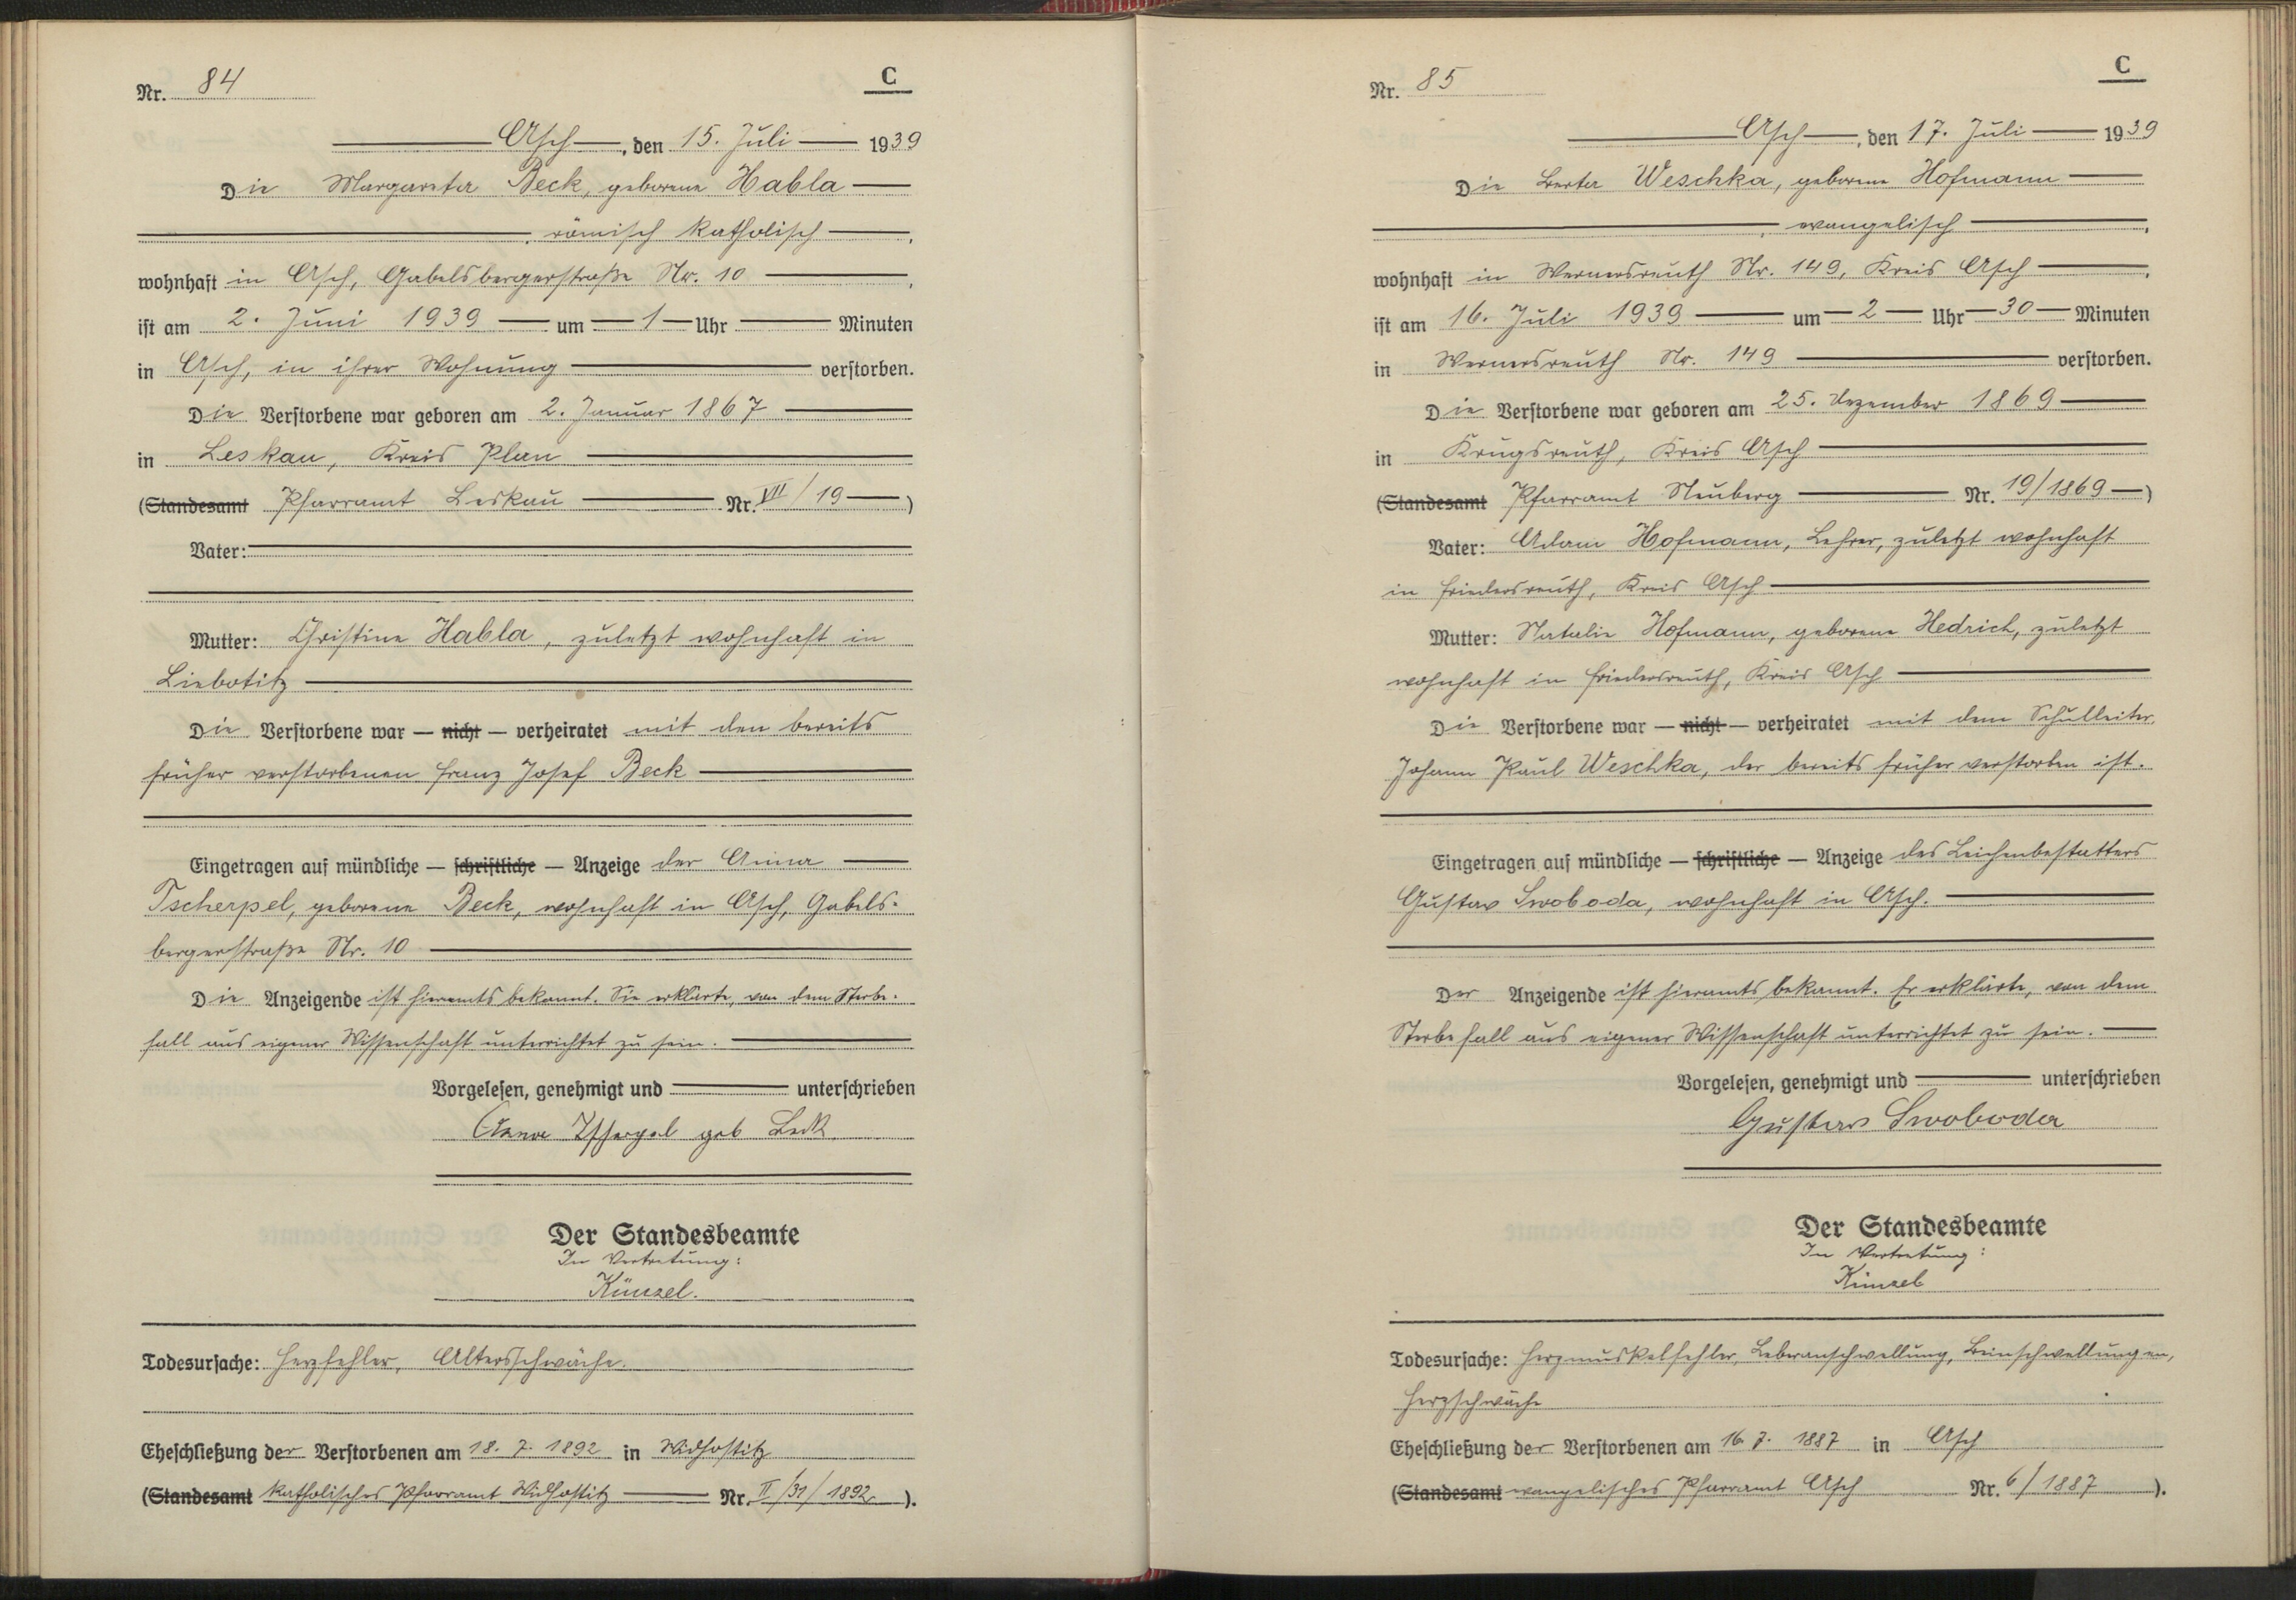 Nr. 84
C
Asch, den 15. Juli 1939
Die Margareta Beck, geborene Habla
, römisch katholisch,
wohnhaft in Asch, Gabelsbergerstraße Nr. 10,
ist am 2. Juni 1939 um 1 Uhr Minuten
in Asch, in ihrer Wohnung verstorben.
Die Verstorbene war geboren am 2. Januar 1867
in Leskau, Kreis Plan
(Standesamt Pfarramt Leskau Nr. VII/19)
Vater:
Mutter: Christine Habla, zuletzt wohnhaft in
Liebotitz
Die Verstorbene war — nicht — verheiratet mit den bereits
früher verstorbenen Franz Josef Beck
Eingetragen auf mündliche — schriftliche — Anzeige der Anna
Tscherpel, geborene Beck, wohnhaft in Asch, Gabels-
bergerstraße Nr. 10
Die Anzeigende ist hieramts bekannt. Sie erklärte, von dem Sterbe-
fall aus eigener Wissenschaft unterrichtet zu sein.
Vorgelesen, genehmigt und unterschrieben
Anna Tscherpel geb Beck
Der Standesbeamte
In Vertretung:
Künzel.
Todesursache: Herzfehler, Altersschwäche.
Eheschließung der Verstorbenen am 18. 7. 1892 in Widhostitz
(Standesamt katholisches Pfarramt Widhostitz Nr. II/31/1892).
Nr. 85
C
Asch, den 17. Juli 1939
Die Berta Weschka, geborene Hofmann
, evangelisch,
wohnhaft in Wernersreuth Nr. 149, Kreis Asch,
ist am 16. Juli 1939 um 2 Uhr 30 Minuten
in Wernersreuth Nr. 149 verstorben.
Die Verstorbene war geboren am 25. Dezember 1869
in Krugsreuth, Kreis Asch
(Standesamt Pfarramt Neuberg Nr. 19/1869)
Vater: Adam Hofmann, Lehrer, zuletzt wohnhaft
in Friedersreuth, Kreis Asch
Mutter: Natalie Hofmann, geborene Hedrich, zuletzt
wohnhaft in Friedersreuth, Kreis Asch
Die Verstorbene war — nicht — verheiratet mit dem Schulleiter
Johann Paul Weschka, der bereits früher verstorben ist.
Eingetragen auf mündliche — schriftliche — Anzeige des Leichenbestatters
Gustav Swoboda, wohnhaft in Asch.
Der Anzeigende ist hieramts bekannt. Er erklärte, von dem
Sterbefall aus eigener Wissenschaft unterrichtet zu sein.
Vorgelesen, genehmigt und unterschrieben
Gustav Swoboda
Der Standesbeamte
In Vertretung:
Künzel
Todesursache: Herzmuskelfehler, Leberanschwellung, Beinschwellungen,
Herzschwäche
Eheschließung der Verstorbenen am 16. 7. 1887 in Asch
(Standesamt evangelisches Pfarramt Asch Nr. 6/1887).